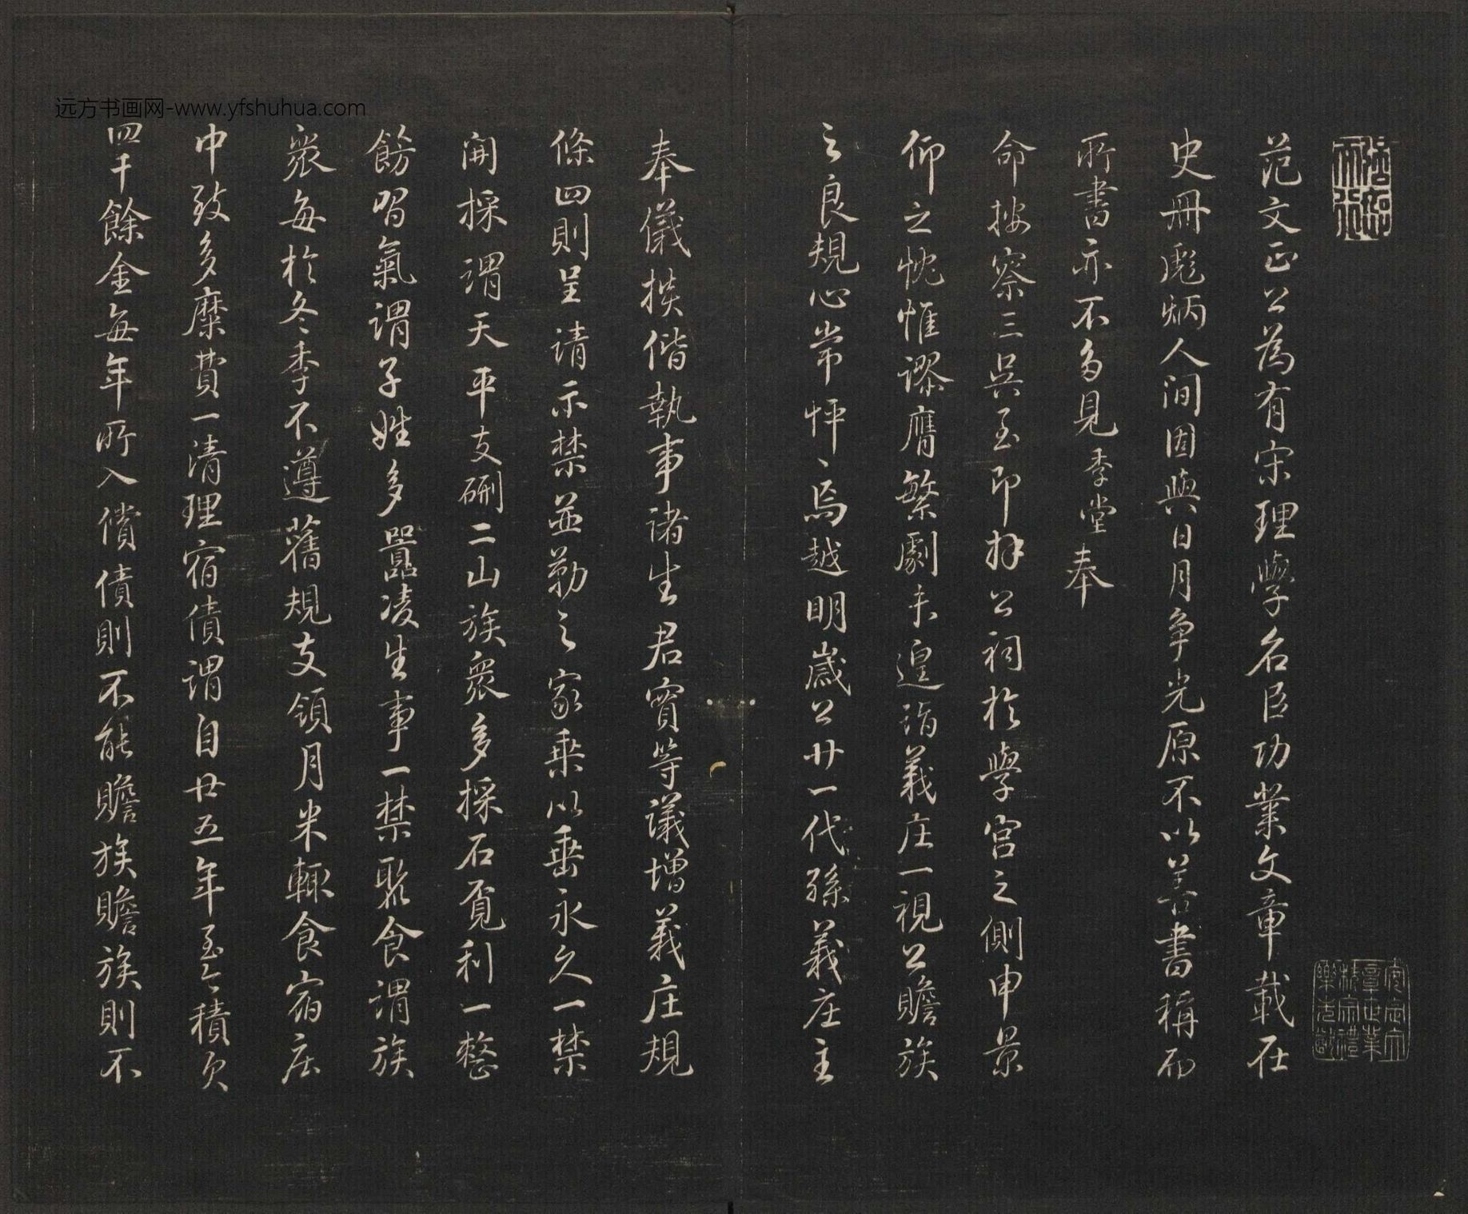 远方书画网-www.yfshuhua.com
范文正公為有宋理學名臣功業文章載在
史冊彪炳人間固與日月争光原不以善書稱而
所書亦不多見季堂奉
命按察三吳至即拜公祠於學宮之側申景
仰之忱惟謬膺繁劇未遑詣義庄一視公贍族
之良規心常怦怦焉越明歲公廿一代孫義庄主
奉儀揆偕執事諸生君實等議增義庄規
條四則呈請示禁並勒之家乘以垂永久一禁
開採謂天平支硎二山族衆多採石覓利一整
飭習氣謂子姓多囂凌生事一禁聚食謂族
衆每於冬季不遵舊規支領月米輒食宿庄
中致多糜費一清理宿債謂自廿五年至今積欠
四千餘金每年所入償債則不能贍族贍族則不